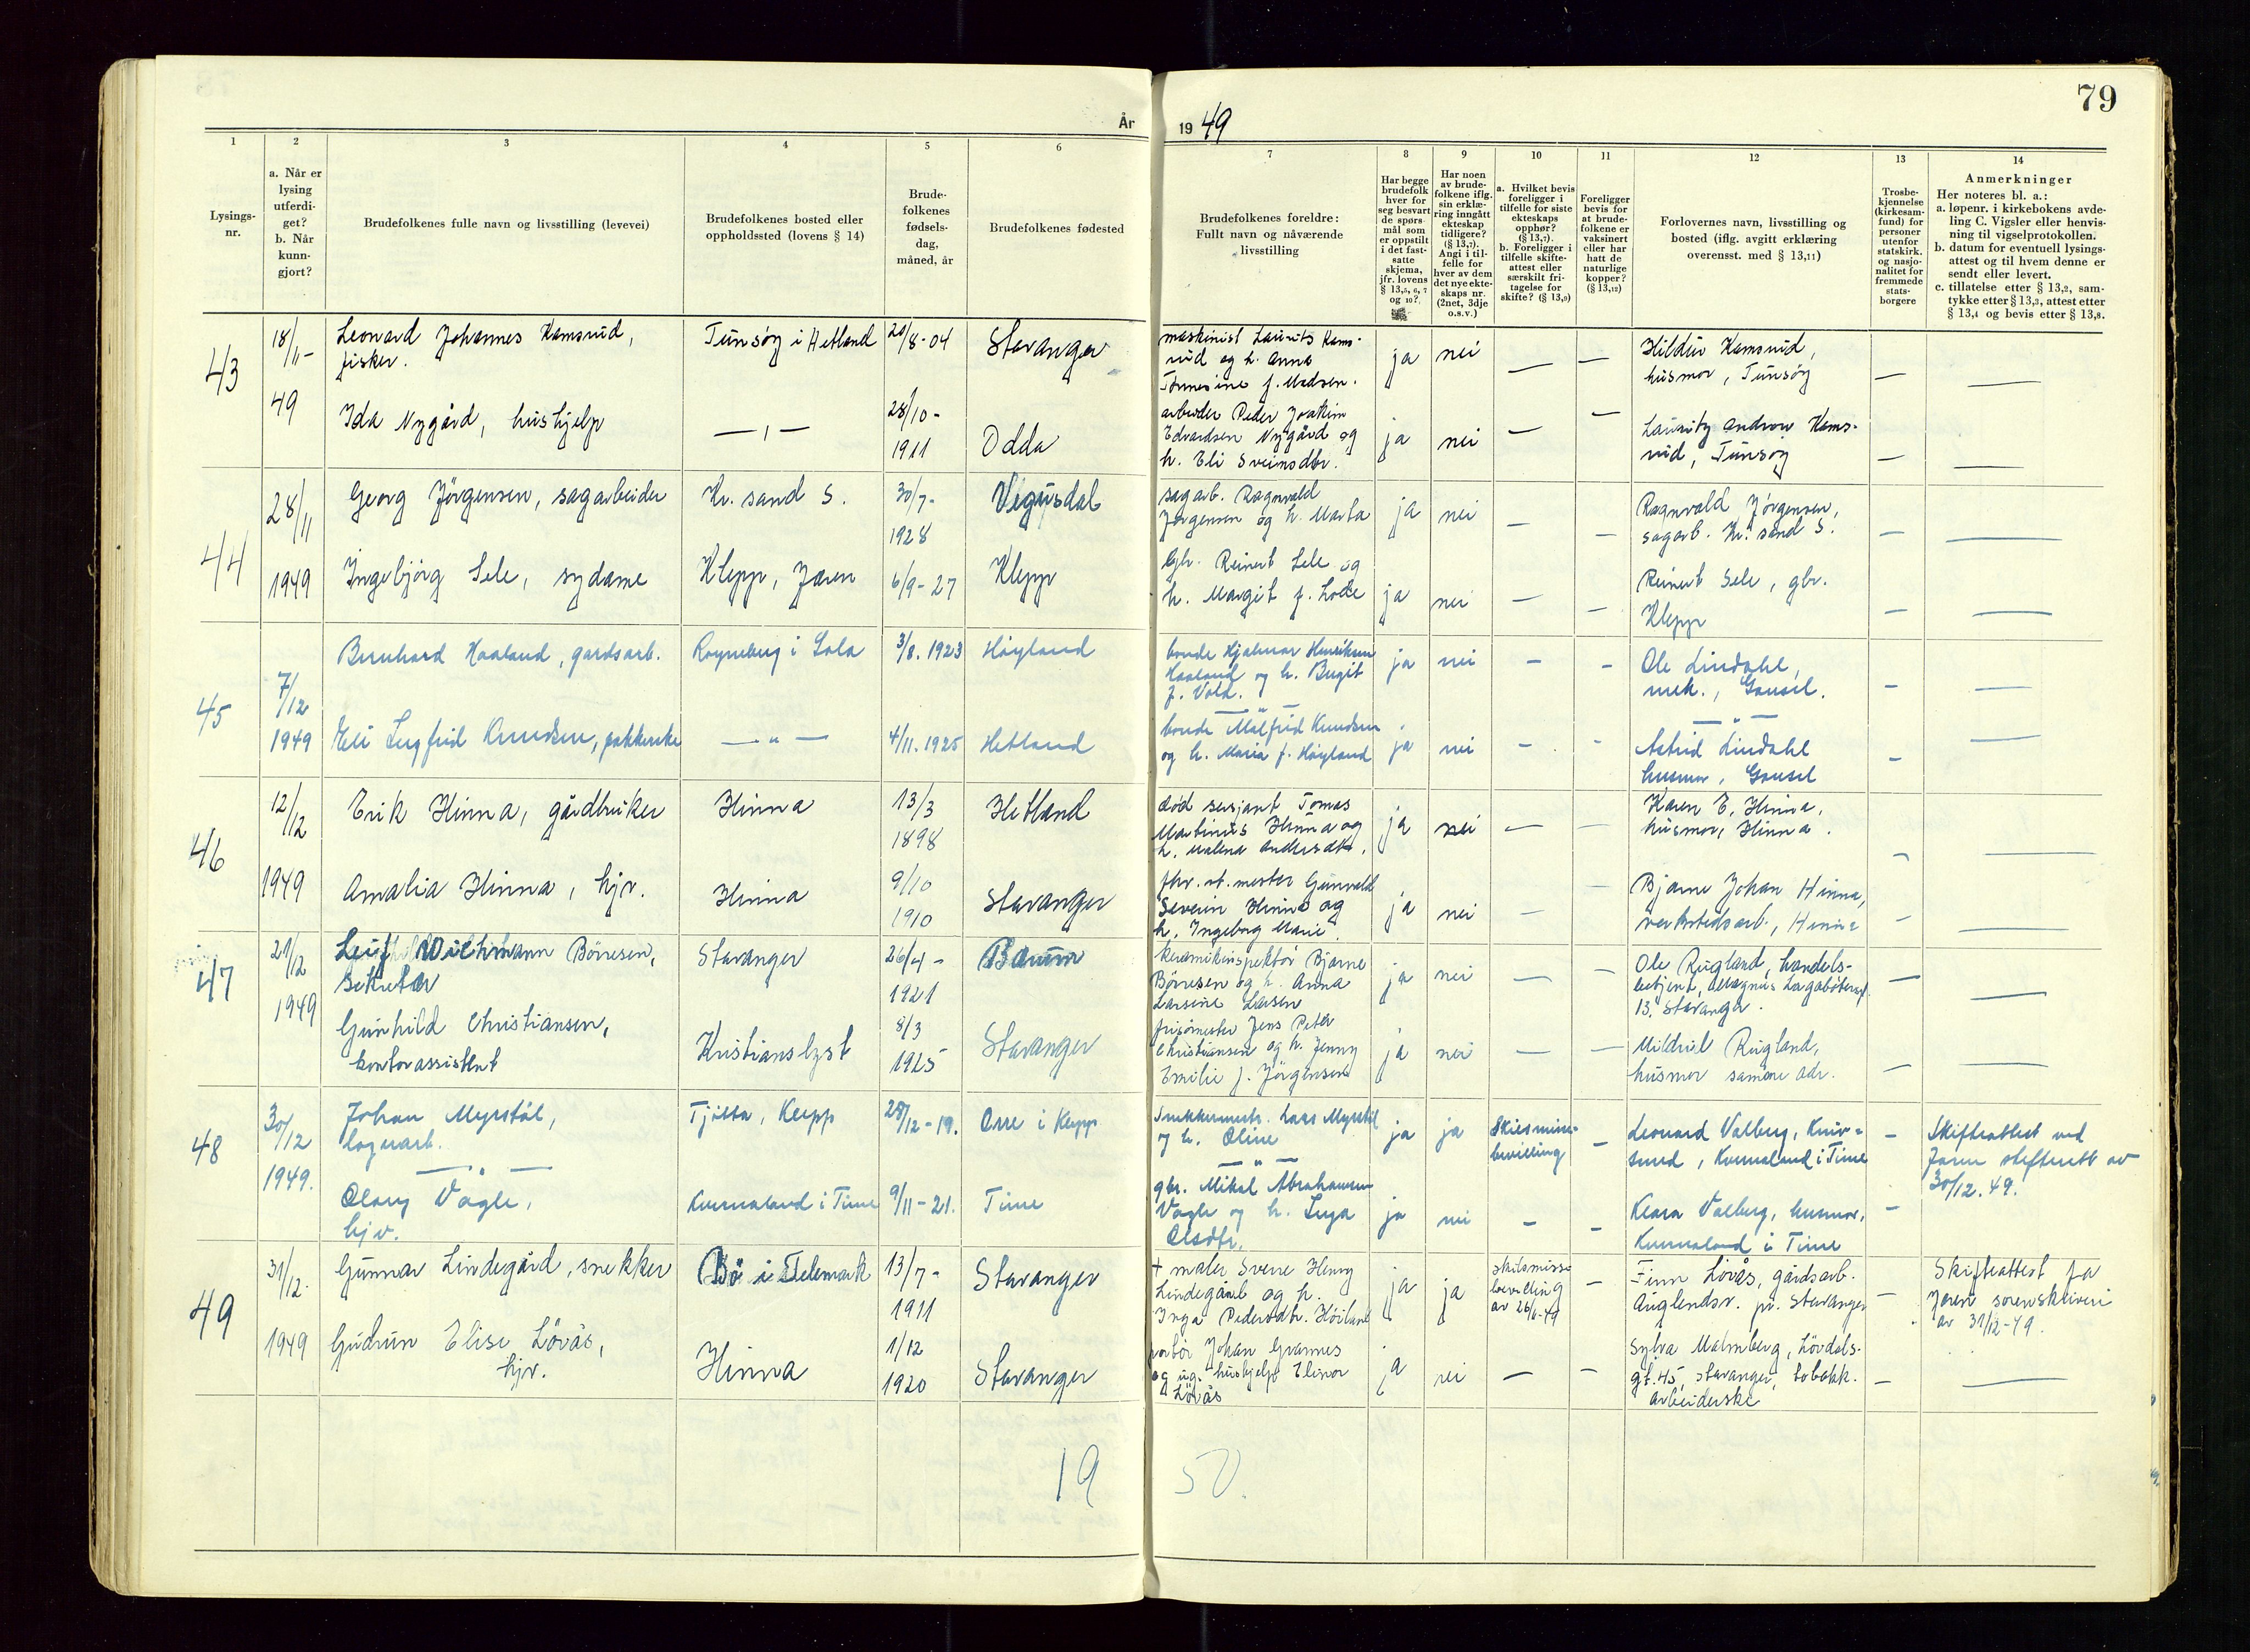 79
År
19 49
1
2
3
4
5
6
7
8
9
10
11
12
13
14
Lysings-
nr.
a. Når er
lysing
utferdi-
get?
b. Når
kunn-
gjort?
Brudefolkenes fulle navn og livsstilling (levevei)
Brudefolkenes bosted eller
oppholdssted (lovens § 14)
Brude-
folkenes
fødsels-
dag,
måned, år
Brudefolkenes fødested
Brudefolkenes foreldre:
Fullt navn og nåværende
livsstilling
Har begge
brudefolk
hver for
seg besvart
de spørs-
mål som
er oppstilt
i det fast-
satte
skjema,
jfr. lovens
§ 13,5, 6, 7
og 10?
Har noen
av brude-
folkene iflg.
sin erklæ-
ring inngått
ekteskap
tidligere?
(§ 13,7).
Angi i til-
felle for
hver av dem
det nye ekte-
skaps nr.
(2net, 3dje
o.s.v.)
a. Hvilket bevis
foreligger i
tilfelle for siste
ekteskaps
opphør?
(§ 13,7).
b. Foreligger i
tilfelle skifte-
attest eller
særskilt fri-
tagelse for
skifte? (§ 13,9)
Foreligger
bevis for
at brude-
folkene er
vaksinert
eller har
hatt de
naturlige
kopper?
(§ 13,12)
Forlovernes navn, livsstilling og
bosted (iflg. avgitt erklæring
overensst. med § 13,11)
Trosbe-
kjennelse
(kirkesam-
fund) for
personer
utenfor
statskirk.
og nasjo-
nalitet for
fremmede
stats-
borgere
Anmerkninger
Her noteres bl. a.:
a. løpenr. i kirkebokens avde-
ling C. Vigsler eller henvis-
ning til vigselprotokollen.
b. datum for eventuell lysings-
attest og til hvem denne er
sendt eller levert.
c. tillatelse etter § 13,2, sam-
tykke etter § 13,3, attest etter
§ 13,4 og bevis etter § 13,8.
43
18/11-
49
Leonard Johannes Hamsrud,
fisker.
Tunsøy i Hetland
20/8-04
Stavanger
maskinist Laurits Hams-
rud og h. Anna
Tønnesine f. Madsen.
ja
nei
—
—
Hildur Hamsrud,
husmor, Tunsøy
—
—
Ida Nygård, hushjelp
— " —
28/10-
1911
Odda
arbeider Peder Joakim
Edvardsen Nygård og
h. Eli Sveinsdtr.
ja
nei
—
—
Lauritz Andreas Hams-
rud, Tunsøy
—
—
44
28/11
1949
Georg Jörgensen, sagarbeider
Kr. sand S.
30/7-
1928
Vegusdal
sagarb. Ragnvald
Jørgensen og h. Marta
ja
nei
—
—
Ragnvald Jörgensen,
sagarb. Kr. sand S.
—
—
Ingebjörg Sele, sydame
Klepp, Jæren
6/9-27
Klepp
Gbr. Reinert Sele og
h. Margit f. Lode
ja
nei
—
—
Reinert Sele, gbr.
Klepp
—
—
45
7/12
1949
Bernhard Haaland, gardsarb.
Røyneberg i Sola
3/8. 1923
Høyland
bonde Hjalmar Henriksen
Haaland og h. Bergit
f. Vold.
ja
nei
—
—
Ole Lindahl,
mek., Gausel.
—
—
Eli Ingfrid Knudsen, pakkerske
— " —
4/11. 1925
Hetland
— " —
bonde Målfrid Knudsen
og h. Maria f. Høyland
ja
nei
—
—
— " —
Astrid Lindahl
husmor, Gausel
—
—
46
12/12
1949
Erik Hinna, gårdbruker
Hinna
13/3
1898
Hetland
død sersjant Tomas
Martinius Hinna og
h. Malena Andersdtr.
ja
nei
—
—
Karen E. Hinna,
husmor, Hinna.
—
—
Amalia Hinna, hjv.
Hinna
9/10
1910
Stavanger
fhv. st. mester Gunvald
Severin Hinna og
h. Ingeborg Marie
ja
nei
—
—
Bjarne Johan Hinna,
verkstedsarb., Hinna
—
—
47
21/12
1949
Leif Børresen,
sekretær
Stavanger
26/4-
1921
Bærum
keramikinspektör Bjarne
Börresen og h. Anna
Larsine Larsen
ja
nei
—
—
Ole Rugland, handels-
betjent, Magnus Lagabøtersgt.
13, Stavanger.
—
—
Gunhild Christiansen,
kontorassistent
Kristianslyst
8/3
1925
Stavanger
frisörmester Jens Peter
Christiansen og h. Jenny
Emilie f. Jörgensen
ja
nei
—
—
Mildrid Rugland,
husmor samme adr.
—
—
48
30/12
1949.
Johan Myrstøl,
lagerarb.
Tjøtta, Klepp
28/12-19.
Orre i Klepp
Snekkermestr. Lars Myrstøl
og h. Oline
ja
ja
Skilsmisse-
bevilling
—
Leonard Valberg, Kniv-
smed, Kvernaland i Time
—
Skifteattest ved
Jæren skifterett av
30/12. 49.
— " —
Olaug Vagle,
hjv.
Kvernaland i Time
9/11-21.
Time
— " —
gbr. Mikal Abrahamsen
Vagle og h. Inga
Olsdtr.
ja
nei
—
—
Klara Valberg, husmor,
Kvernaland i Time
—
49
31/12.
1949
Gunnar Lindegård, snekker
Bö i Telemark
13/7-
1911
Stavanger
+ maler Sverre Henry
Lindegård og h.
Inga Pedersdtr. Höiland
ja
ja
skilsmisse
bevilling
av 26/6-49
—
Finn Lövås, gårdsarb.
Auglendsv. pr. Stavanger
—
Skifteattest fra
Jæren sorenskriveri
av 31/12-49.
Gudrun Elise Lövås,
hjv.
Hinna
1/12
1920
Stavanger
Johan Grannes
og ug. hushjelp Elinor
Lövås
ja
nei
—
—
Sylva Malmberg, Lövdals-
gt. 45, Stavanger, tobakk-
arbeiderske
—
—
19 50.